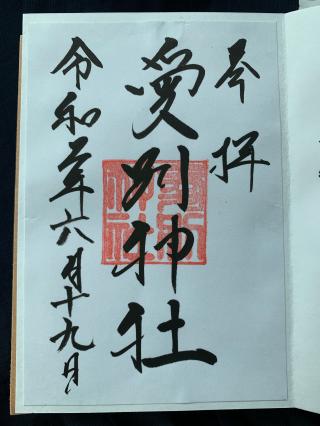 奉拝
愛別神社
令和元年六月十九日
愛別神社